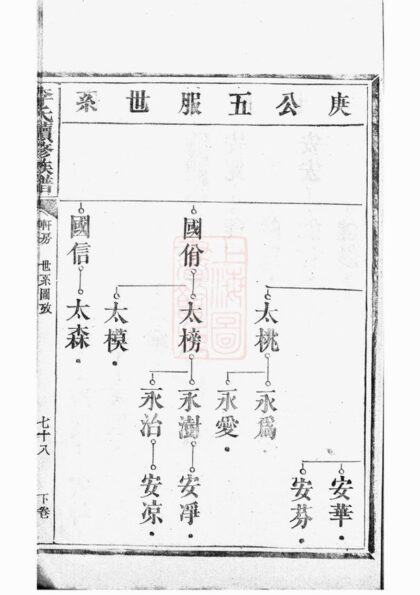 庚公五服世系
安華
安芬
太桃
永爲
永愛
國佾
太榜
永樹
安凈
永治
安凉
太模
國信
太森
李氏續修族譜
軒房 世系圖攷
七十八
下卷
上海圖